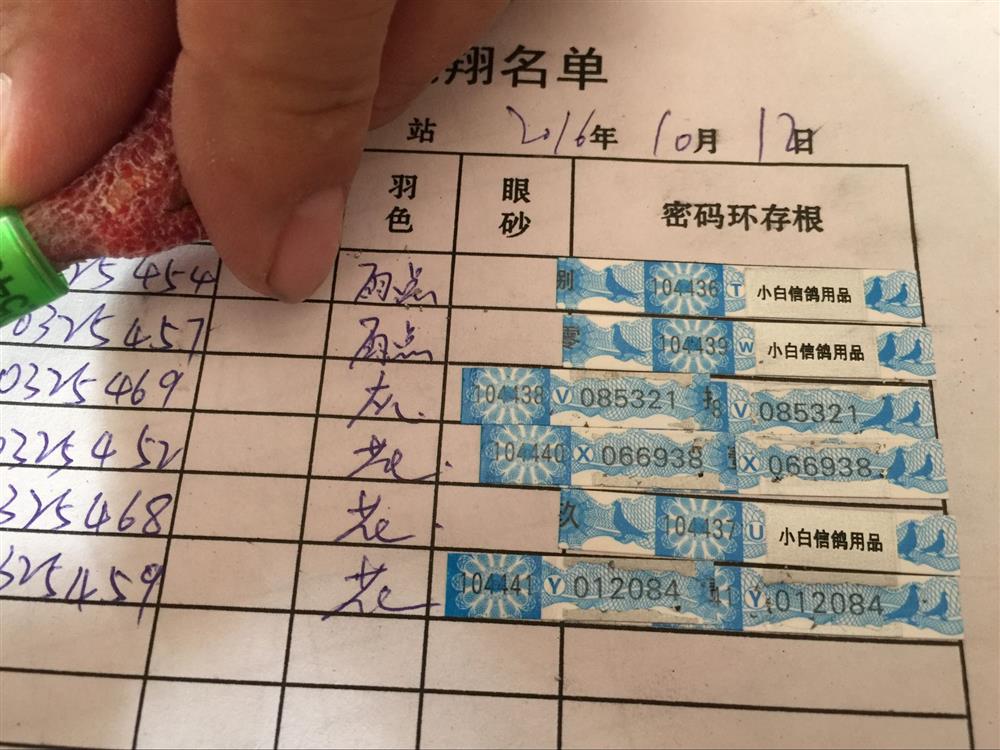 翔名单
站 2016年 10月 12日
羽色 眼砂 密码环存根
25454 雨点 别 104436 T 小白信鸽用品
0325457 雨点 零 104439 W 小白信鸽用品
0325469 灰 104438 V 085321 V 085321
0325452 花 104440 X 066938 X 066938
325468 花 玖 104437 U 小白信鸽用品
325459 花 104441 Y 012084 Y 012084